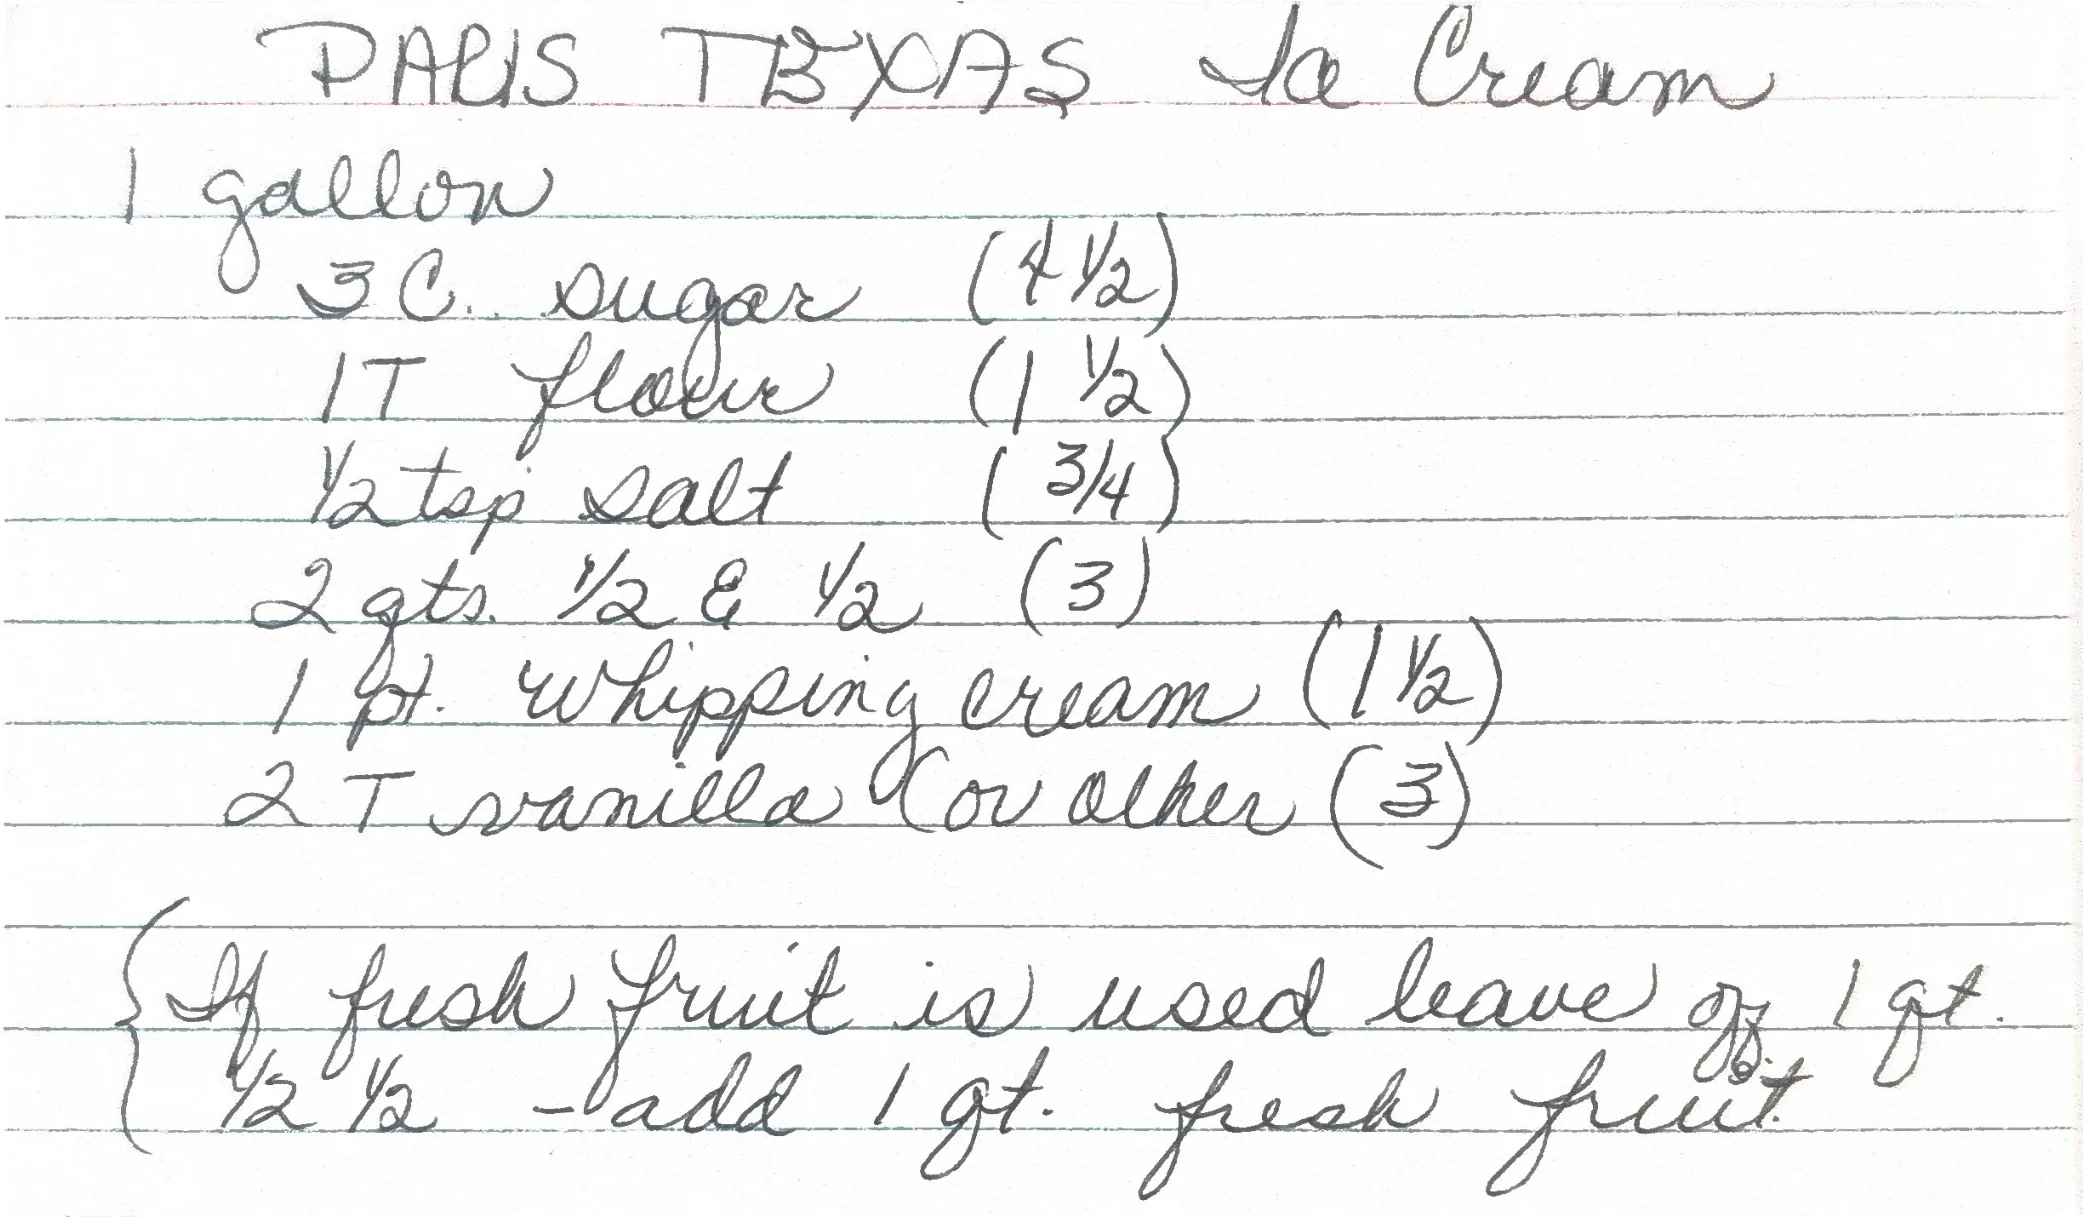 PARIS TEXAS Ice Cream
1 gallon
3 C. sugar (4 1/2)
1 T flour (1 1/2)
1/2 tsp salt (3/4)
2 qts. 1/2 & 1/2 (3)
1 pt. whipping cream (1 1/2)
2 T vanilla (or other (3)
{If fresh fruit is used leave off 1 qt.
1/2 1/2 - add 1 qt. fresh fruit